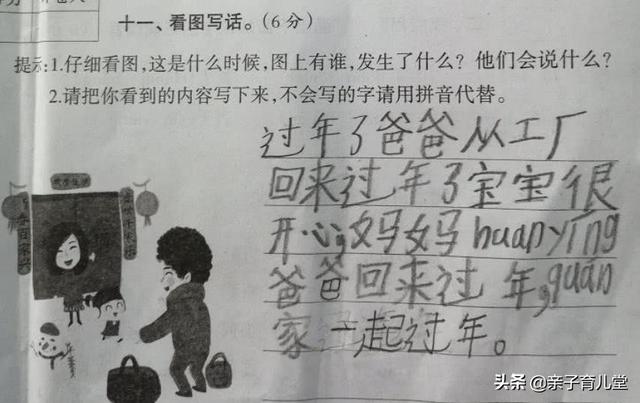 十一、看图写话。(6分)
提示:1.仔细看图,这是什么时候,图上有谁,发生了什么?他们会说什么?
2.请把你看到的内容写下来,不会写的字请用拼音代替。
过年了爸爸从工厂
回来过年了宝宝很
开心,妈妈huānyíng
爸爸回来过年,quán
家一起过年。
头条@亲子育儿堂